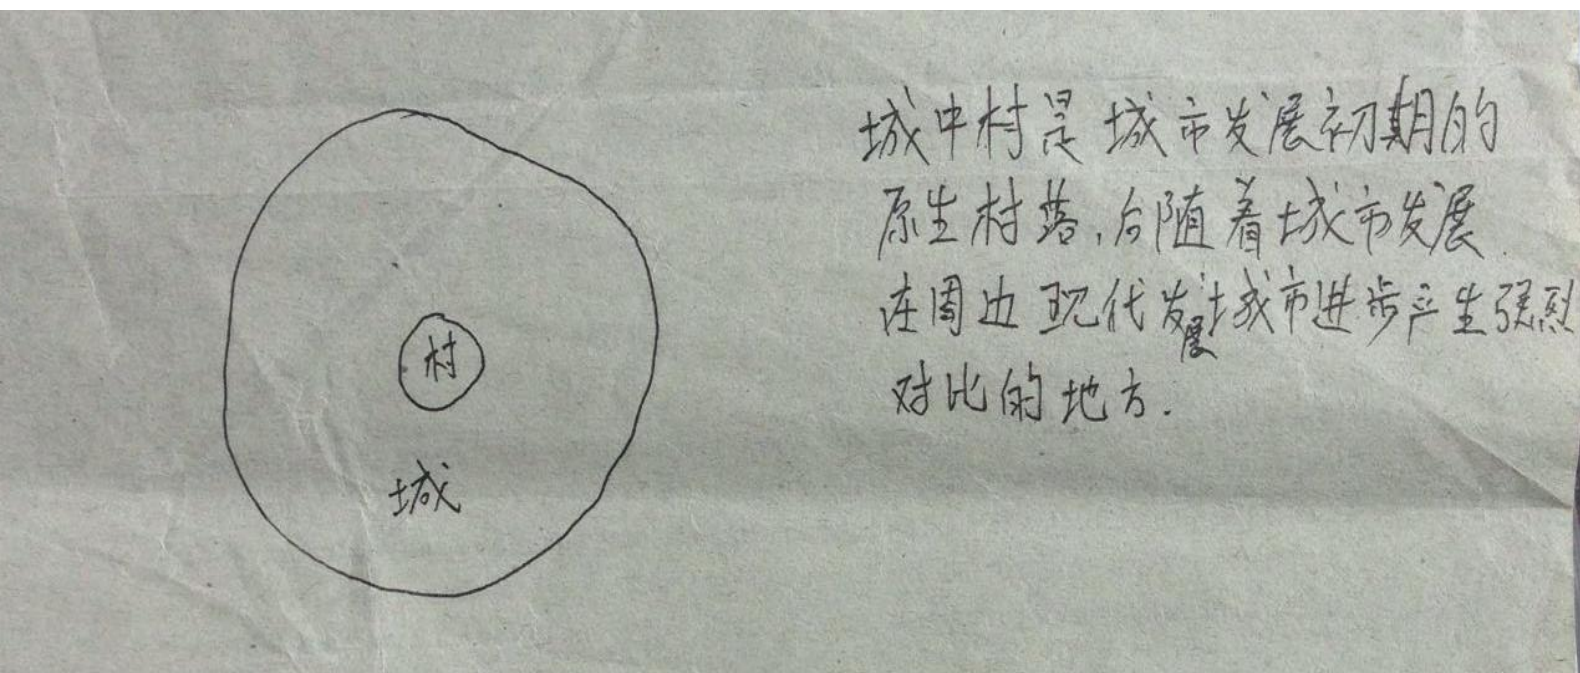 村
城
城中村是城市发展初期的
原生村落,后随着城市发展
在周边现代发展城市进步产生强烈
对比的地方.